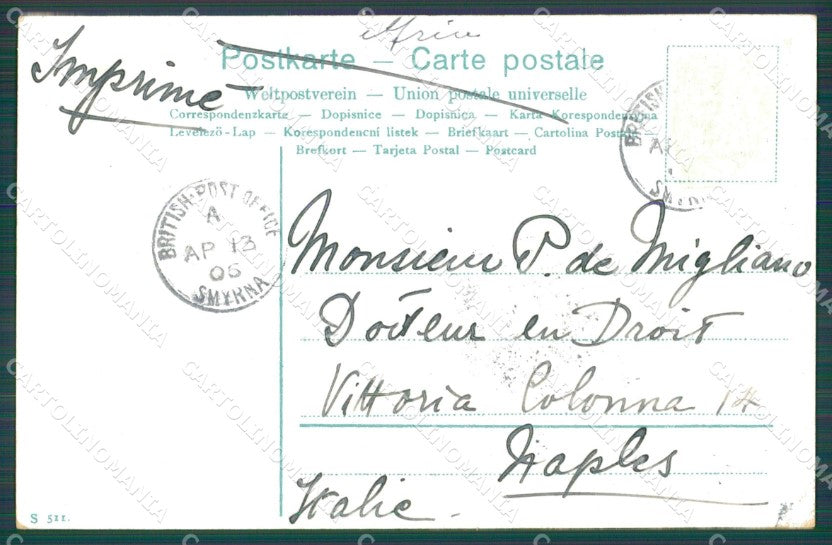 Imprimé
Postkarte — Carte postale
Weltpostverein — Union postale universelle
Correspondenzkarte — Dopisnice — Dopisnica — Karta Korespondencyjna
Levelező-Lap — Korespondencni listek — Briefkaart — Cartolina Postale
Brefkort — Tarjeta Postal — Postcard
BRITISH POST OFFICE
A
AP 13
05
SMYRNA
BRITISH
A
SMYRNA
Monsieur P. de Migliano
Docteur en Droit
Vittoria Colonna 14
Naples
Italie.
S 511.
CARTOLINOMANIA